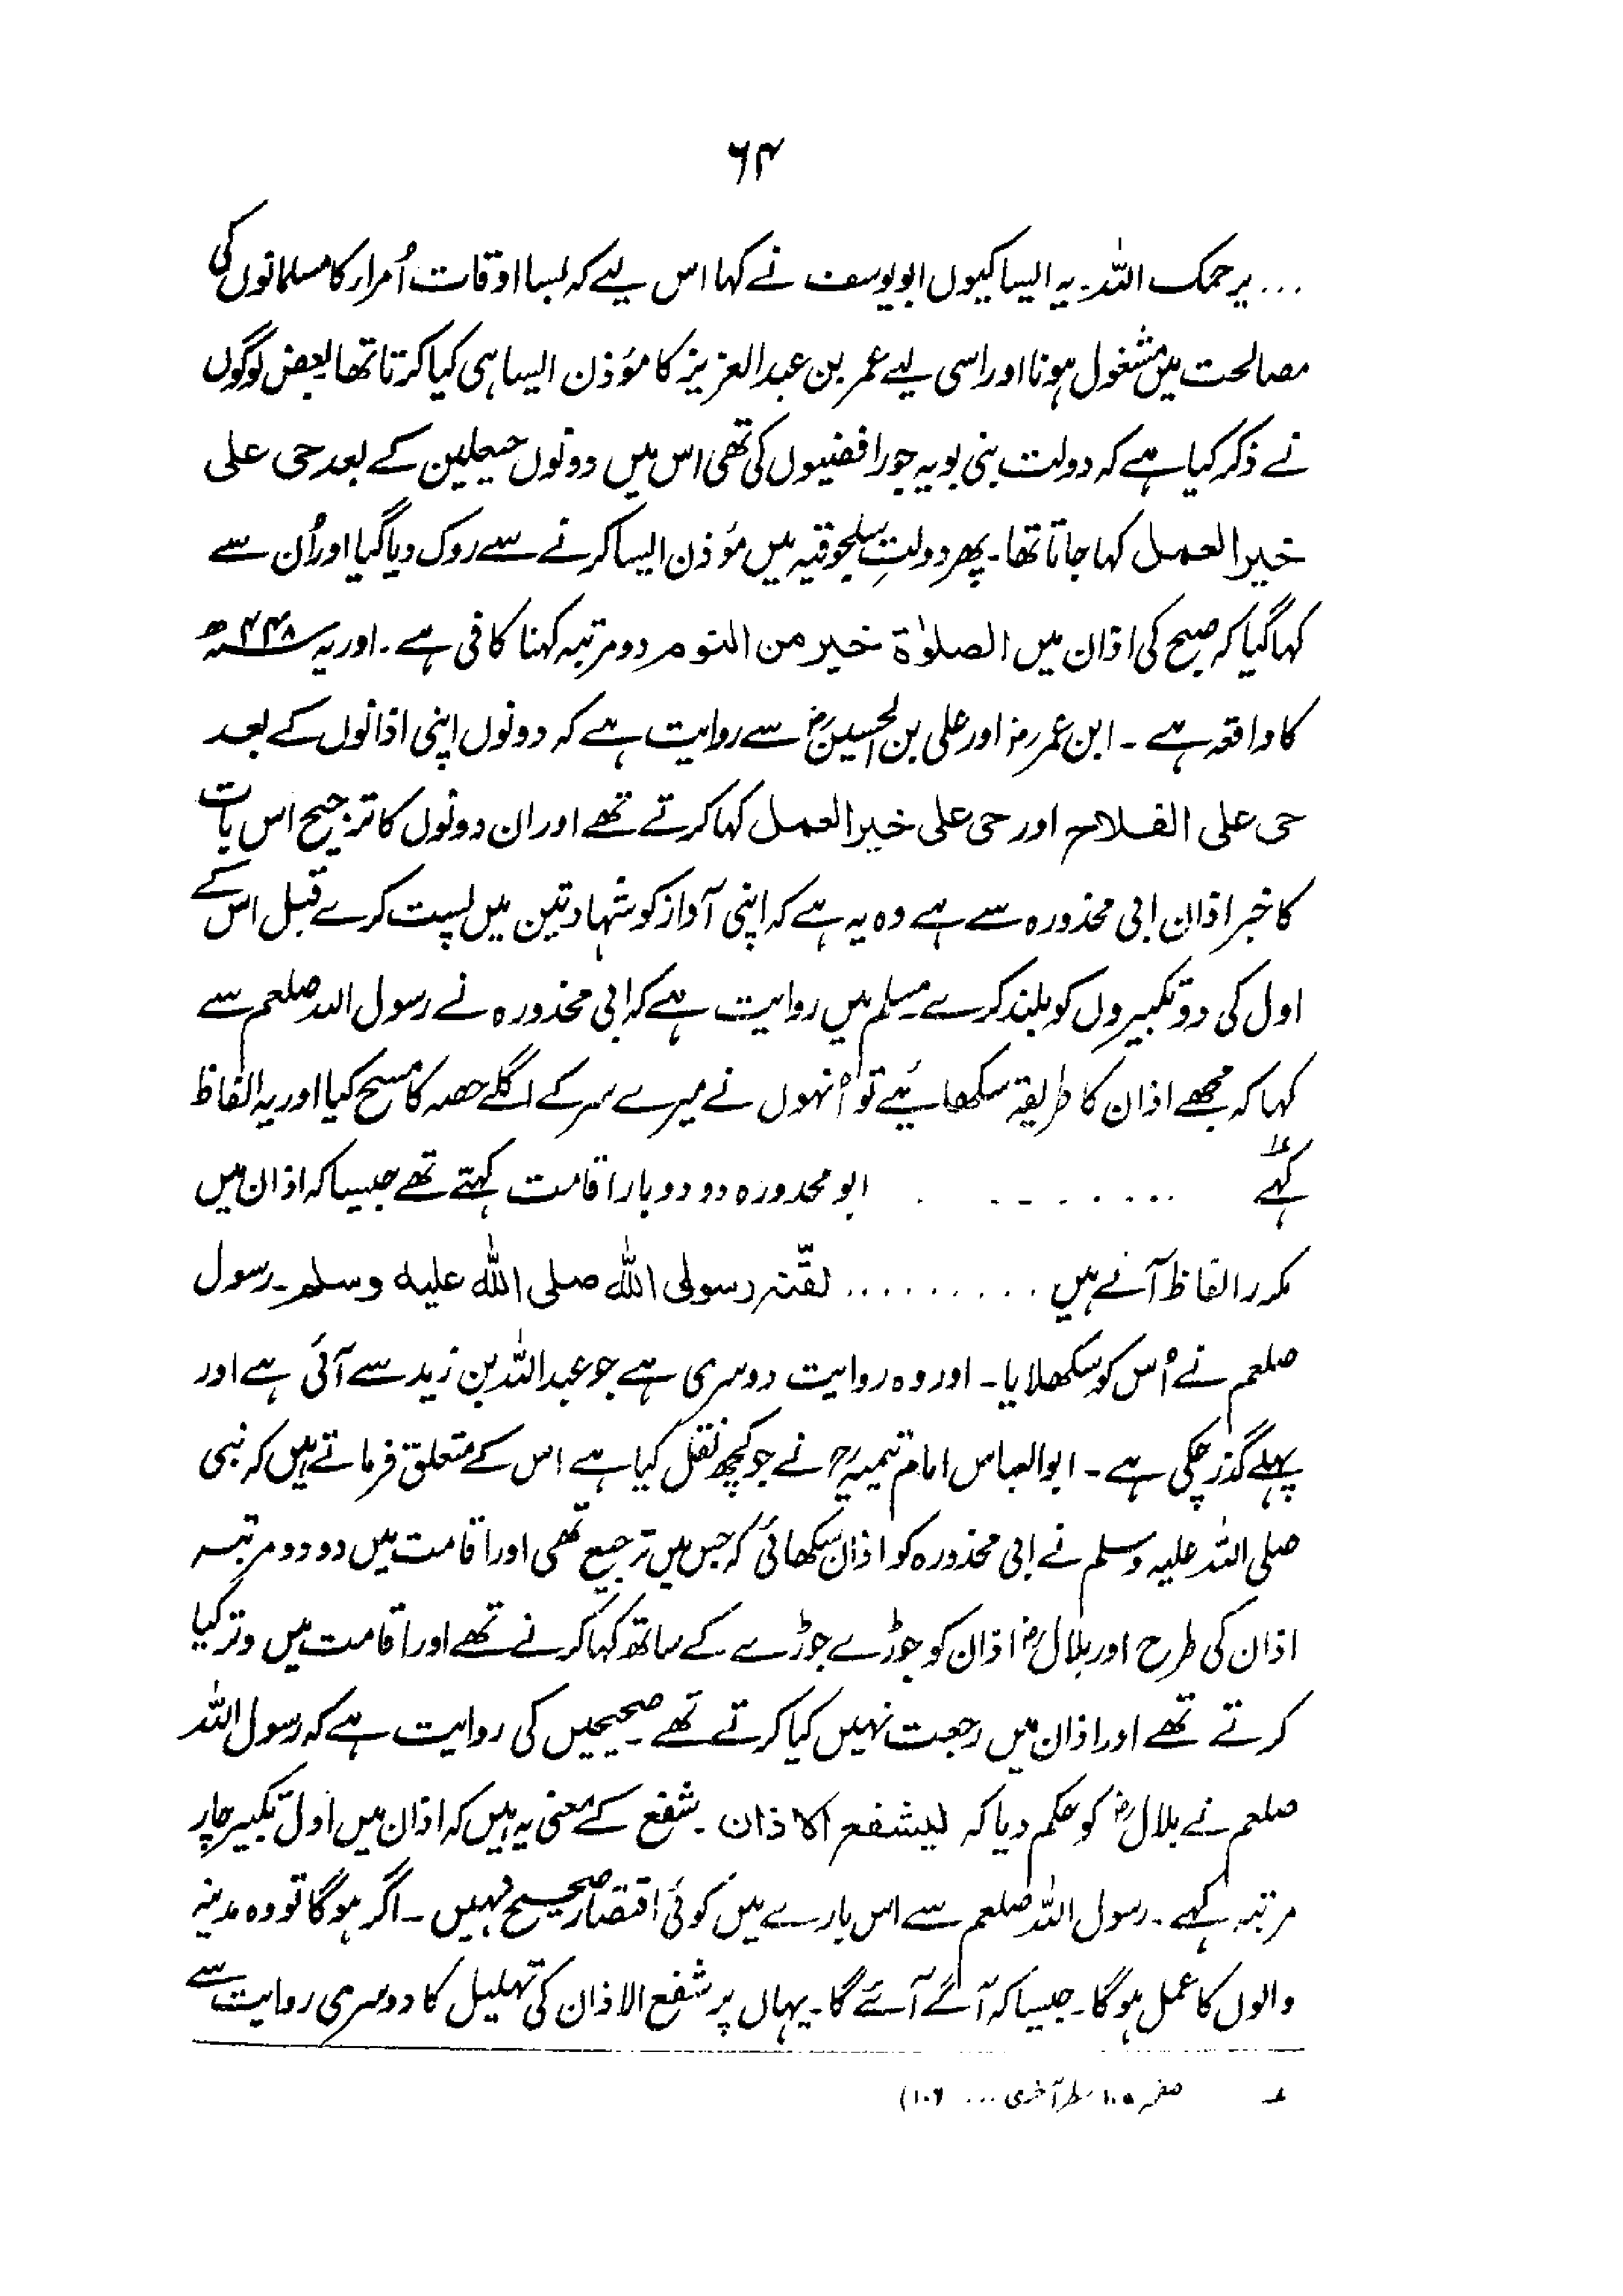 ۶۴
... یرحمک اللہ۔ یہ ایسا کیوں ابویوسف نے کہا اس لیے کہ بسا اوقات اُمراء کا مسلمانوں کی
مصالحت میں مشغول ہونا اور اسی لیے عمر بن عبدالعزیز کا مؤذن ایسا ہی کیا کرتا تھا بعض لوگوں
نے ذکر کیا ہے کہ دولت بنی بویہ جو رافضیوں کی تھی اس میں دونوں حیعلین کے بعد حی علی
خیر العمل کہا جاتا تھا۔ پھر دولتِ سلجوقیہ میں مؤذن ایسا کرنے سے روک دیا گیا اور اُن سے
کہا گیا کہ صبح کی اذان میں الصلوٰة خیر من النوم دو مرتبہ کہنا کافی ہے۔ اور یہ ۴۴۸ھ
کا واقعہ ہے۔ ابن عمر رض اور علی بن الحسین رض سے روایت ہے کہ دونوں اپنی اذانوں کے بعد
حی علی الفلاح اور حی علی خیر العمل کہا کرتے تھے اور ان دونوں کا ترجیح اس بات
کا خبر اذان ابی محذورہ سے ہے وہ یہ ہے کہ اپنی آواز کو شہادتین میں پست کرے قبل اس کے
اول کی دو تکبیروں کو بلند کرے مسلم میں روایت ہے کہ ابی محذورہ نے رسول اللہ صلعم سے
کہا کہ مجھے اذان کا طریقہ سکھایئے تو اُنہوں نے میرے سر کے اگلے حصہ کا مسح کیا اور یہ الفاظ
کہے ؏ ........ ابو محذورہ دو دو بار اقامت کہتے تھے جیسا کہ اذان میں
مکرر الفاظ آتے ہیں ......... لقّنہ رسول اللہ صلی اللہ علیہ وسلم۔ رسول
صلعم نے اُس کو سکھلایا۔ اور وہ روایت دوسری ہے جو عبداللہ بن زید سے آئی ہے اور
پہلے گذر چکی ہے۔ ابوالعباس امام تیمیہؒ نے جو کچھ نقل کیا ہے اس کے متعلق فرماتے ہیں کہ نبی
صلی اللہ علیہ وسلم نے ابی محذورہ کو اذان سکھائی کہ جس میں ترجیع تھی اور اقامت میں دو دو مرتبہ
اذان کی طرح اور بلال رض اذان کو جوڑے جوڑے کے ساتھ کہا کرتے تھے اور اقامت میں وتر کیا
کرتے تھے اور اذان میں رجعت نہیں کیا کرتے تھے۔ صحیحیں کی روایت ہے کہ رسول اللہ
صلعم نے بلال رض کو حکم دیا کہ لیشفع الاذان۔ شفع کے معنی یہ ہیں کہ اذان میں اول تکبیر چار
مرتبہ کہے۔ رسول اللہ صلعم سے اس بارے میں کوئی اقتصار صحیح نہیں۔ اگر ہوگا تو وہ مدینہ
والوں کا عمل ہوگا۔ جیسا کہ آگے آئے گا۔ یہاں پر شفع الاذان کی تہلیل کا دوسری روایت سے
؏ صفحہ ۱۰۵ سطر آخری ... ۱۰۶)